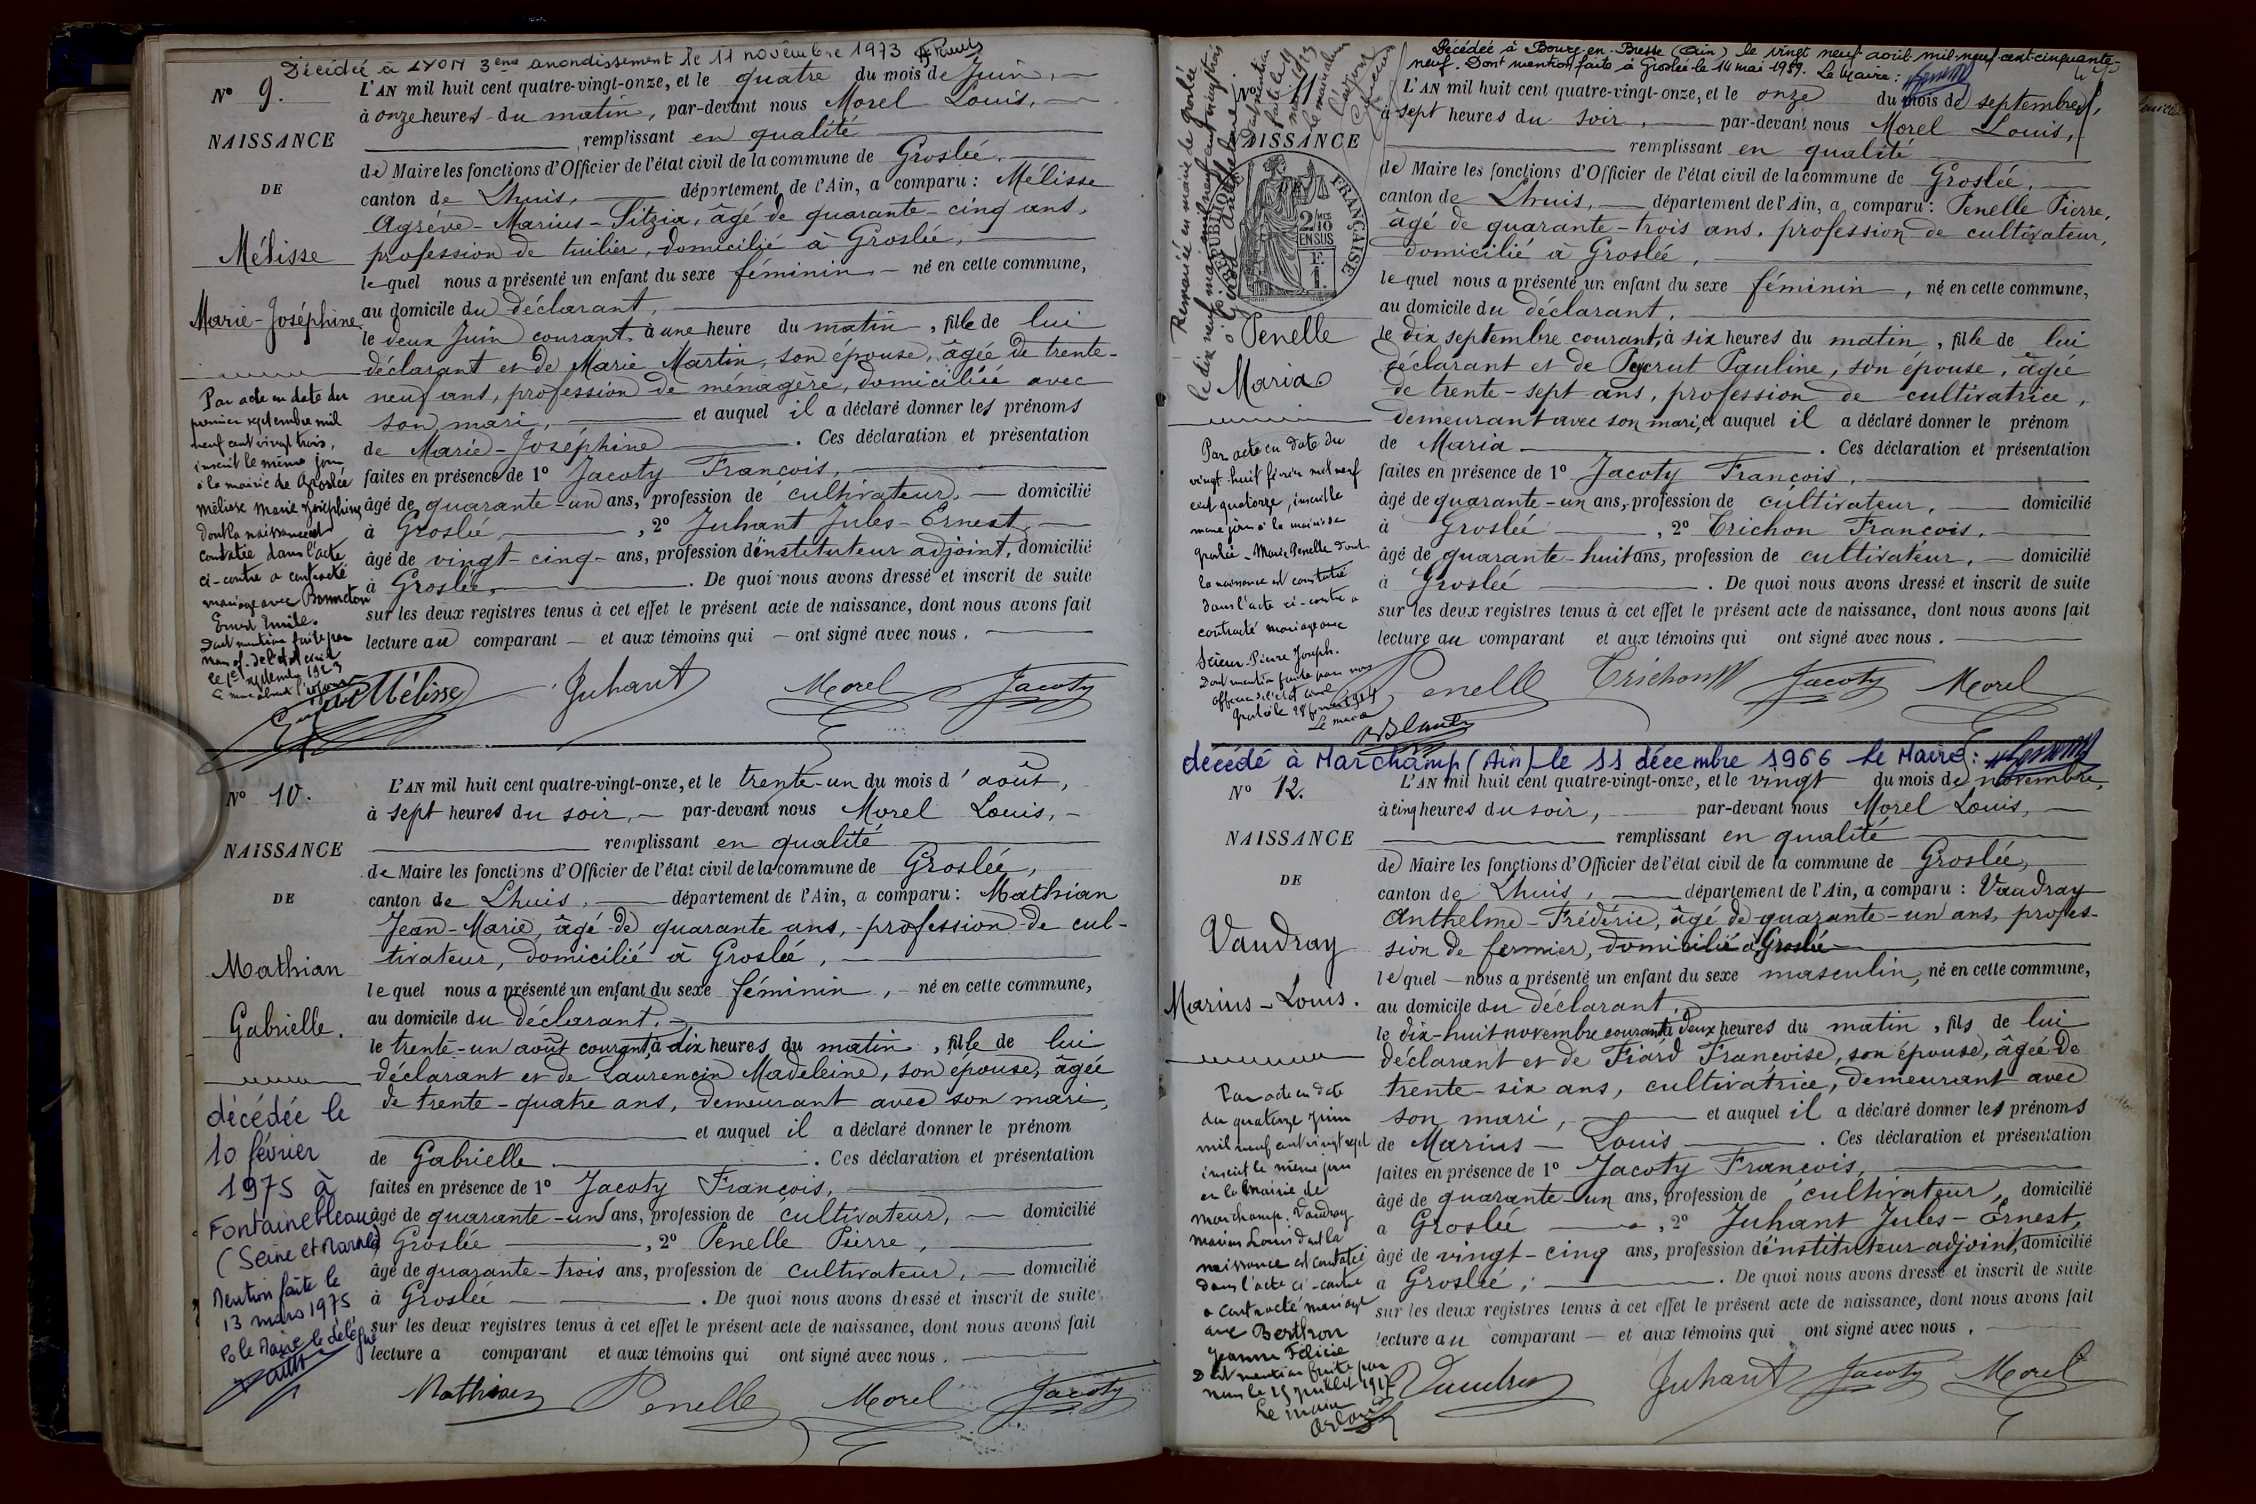 Décédée à LYON 3ème arrondissement le 11 novembre 1973
N° 9.
NAISSANCE
DE
Mélisse
Marie-Joséphine
Par acte en date du
premier septembre mil
neuf cent vingt trois,
inscrit le même jour
à la mairie de Groslée
Mélisse Marie Joséphine
dont la naissance est
constatée dans l'acte
ci-contre a contracté
mariage avec Bonneton
Ernest Emile.
Dont mention faite par
nous of. de l'état civil
le 1er septembre 1923
L'AN mil huit cent quatre-vingt-onze, et le quatre du mois de Juin,
à onze heures du matin, par-devant nous Morel Louis,
remplissant en qualité
de Maire les fonctions d'Officier de l'état civil de la commune de Groslée,
canton de Lhuis, département de l'Ain, a comparu : Mélisse
Agrève-Marius-Sitzia, âgé de quarante-cinq ans,
profession de tuilier, domicilié à Groslée,
lequel nous a présenté un enfant du sexe féminin né en cette commune,
au domicile du déclarant,
le deux Juin courant, à une heure du matin, fille de lui
déclarant et de Marie Martin, son épouse, âgée de trente-
neuf ans, profession de ménagère, domiciliée avec
son mari, et auquel il a déclaré donner les prénoms
de Marie-Joséphine. Ces déclaration et présentation
faites en présence de 1° Jacoty François,
âgé de quarante-un ans, profession de cultivateur, domicilié
à Groslée, 2° Juhant Jules-Ernest,
âgé de vingt-cinq ans, profession d'instituteur adjoint, domicilié
à Groslée. De quoi nous avons dressé et inscrit de suite
sur les deux registres tenus à cet effet le présent acte de naissance, dont nous avons fait
lecture au comparant et aux témoins qui ont signé avec nous.
Mélisse Juhant Morel Jacoty
N° 10.
NAISSANCE
DE
Mathian
Gabrielle.
décédée le
10 février
1975 à
Fontainebleau
(Seine et Marne)
Mention faite le
13 mars 1975
Po le Maire le délégué
L'AN mil huit cent quatre-vingt-onze, et le trente-un du mois d'août,
à sept heures du soir, par-devant nous Morel Louis,
remplissant en qualité
de Maire les fonctions d'Officier de l'état civil de la commune de Groslée,
canton de Lhuis, département de l'Ain, a comparu : Mathian
Jean-Marie, âgé de quarante ans, profession de cul-
tivateur, domicilié à Groslée,
lequel nous a présenté un enfant du sexe féminin, né en cette commune,
au domicile du déclarant,
le trente-un août courant, à dix heures du matin, fille de lui
déclarant et de Laurencin Madeleine, son épouse, âgée
de trente-quatre ans, demeurant avec son mari,
et auquel il a déclaré donner le prénom
de Gabrielle. Ces déclaration et présentation
faites en présence de 1° Jacoty François,
âgé de quarante-un ans, profession de cultivateur, domicilié
à Groslée, 2° Penelle Pierre,
âgé de quarante-trois ans, profession de cultivateur, domicilié
à Groslée. De quoi nous avons dressé et inscrit de suite
sur les deux registres tenus à cet effet le présent acte de naissance, dont nous avons fait
lecture a comparant et aux témoins qui ont signé avec nous.
Mathian Penelle Morel Jacoty
Décédée à Bourg-en-Bresse (Ain) le vingt neuf avril mil-neuf-cent-cinquante-
neuf. Dont mention faite à Groslée le 14 mai 1959. Le Maire :
N° 11
NAISSANCE
RÉPUBLIQUE FRANÇAISE
2/10 EN SUS
Remariée en mairie de Groslée
Penelle
Maria
Par acte en date du
vingt-huit février mil neuf
cent quatorze, inscrit le
même jour à la mairie de
Groslée. Maria Penelle dont
la naissance est constatée
dans l'acte ci-contre a
contracté mariage avec
Pierre Joseph.
Dont mention faite par nous
officier de l'état civil
Groslée le 28 février 1914
Le maire
L'AN mil huit cent quatre-vingt-onze, et le onze du mois de septembre,
à sept heures du soir, par-devant nous Morel Louis,
remplissant en qualité
de Maire les fonctions d'Officier de l'état civil de la commune de Groslée,
canton de Lhuis, département de l'Ain, a comparu : Penelle Pierre,
âgé de quarante-trois ans, profession de cultivateur,
domicilié à Groslée,
lequel nous a présenté un enfant du sexe féminin, né en cette commune,
au domicile du déclarant,
le dix septembre courant, à six heures du matin, fille de lui
déclarant et de Peycrut Pauline, son épouse, âgée
de trente-sept ans, profession de cultivatrice,
demeurant avec son mari, et auquel il a déclaré donner le prénom
de Maria. Ces déclaration et présentation
faites en présence de 1° Jacoty François,
âgé de quarante-un ans, profession de cultivateur, domicilié
à Groslée, 2° Trichon François,
âgé de quarante-huit ans, profession de cultivateur, domicilié
à Groslée. De quoi nous avons dressé et inscrit de suite
sur les deux registres tenus à cet effet le présent acte de naissance, dont nous avons fait
lecture au comparant et aux témoins qui ont signé avec nous.
Penelle Trichon Jacoty Morel
décédé à Marchamp (Ain) le 11 décembre 1966 Le Maire :
N° 12.
NAISSANCE
DE
Vaudray
Marius-Louis.
Par acte en date
du quatorze juin
mil neuf cent vingt sept
inscrit le même jour
en la mairie de
Marchamp. Vaudray
Marius Louis dont la
naissance est constatée
dans l'acte ci-contre
a contracté mariage
avec Berthon
Jeanne Félicie
Dont mention faite par
nous le 25 juillet 1927
Le maire
L'AN mil huit cent quatre-vingt-onze, et le vingt du mois de novembre,
à cinq heures du soir, par-devant nous Morel Louis,
remplissant en qualité
de Maire les fonctions d'Officier de l'état civil de la commune de Groslée,
canton de Lhuis, département de l'Ain, a comparu : Vaudray
Anthelme-Frédéric, âgé de quarante-un ans, profes-
sion de fermier, domicilié à Groslée
lequel nous a présenté un enfant du sexe masculin, né en cette commune,
au domicile du déclarant,
le dix-huit novembre courant à deux heures du matin, fils de lui
déclarant et de Fiard Françoise, son épouse, âgée de
trente-six ans, cultivatrice, demeurant avec
son mari, et auquel il a déclaré donner les prénoms
de Marius-Louis. Ces déclaration et présentation
faites en présence de 1° Jacoty François,
âgé de quarante-un ans, profession de cultivateur, domicilié
à Groslée, 2° Juhant Jules-Ernest,
âgé de vingt-cinq ans, profession d'instituteur adjoint, domicilié
à Groslée. De quoi nous avons dressé et inscrit de suite
sur les deux registres tenus à cet effet le présent acte de naissance, dont nous avons fait
lecture au comparant et aux témoins qui ont signé avec nous.
Vaudray Juhant Jacoty Morel